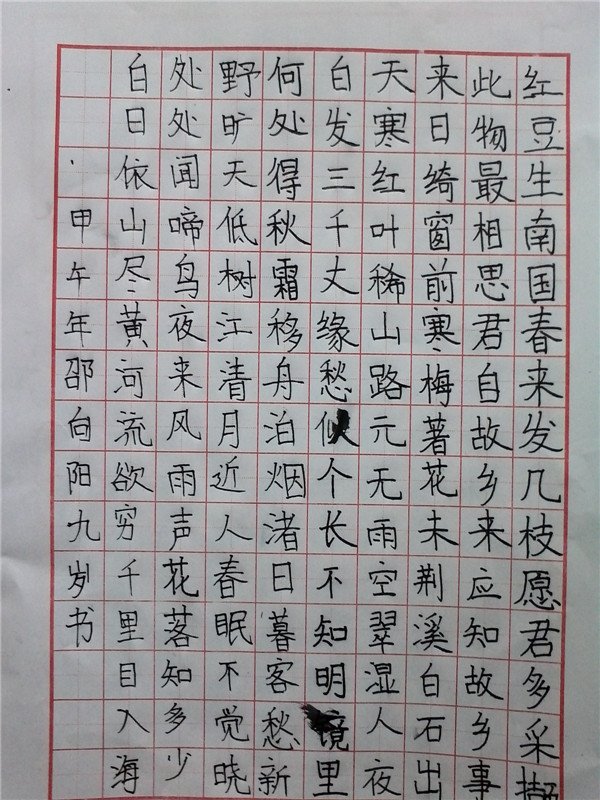 红豆生南国春来发几枝愿君多采撷
此物最相思君自故乡来应知故乡事
来日绮窗前寒梅著花未荆溪白石出
天寒红叶稀山路元无雨空翠湿人夜
白发三千丈缘愁似个长不知明镜里
何处得秋霜移舟泊烟渚日暮客愁新
野旷天低树江清月近人春眠不觉晓
处处闻啼鸟夜来风雨声花落知多少
白日依山尽黄河流欲穷千里目入海
甲午年邵向阳九岁书